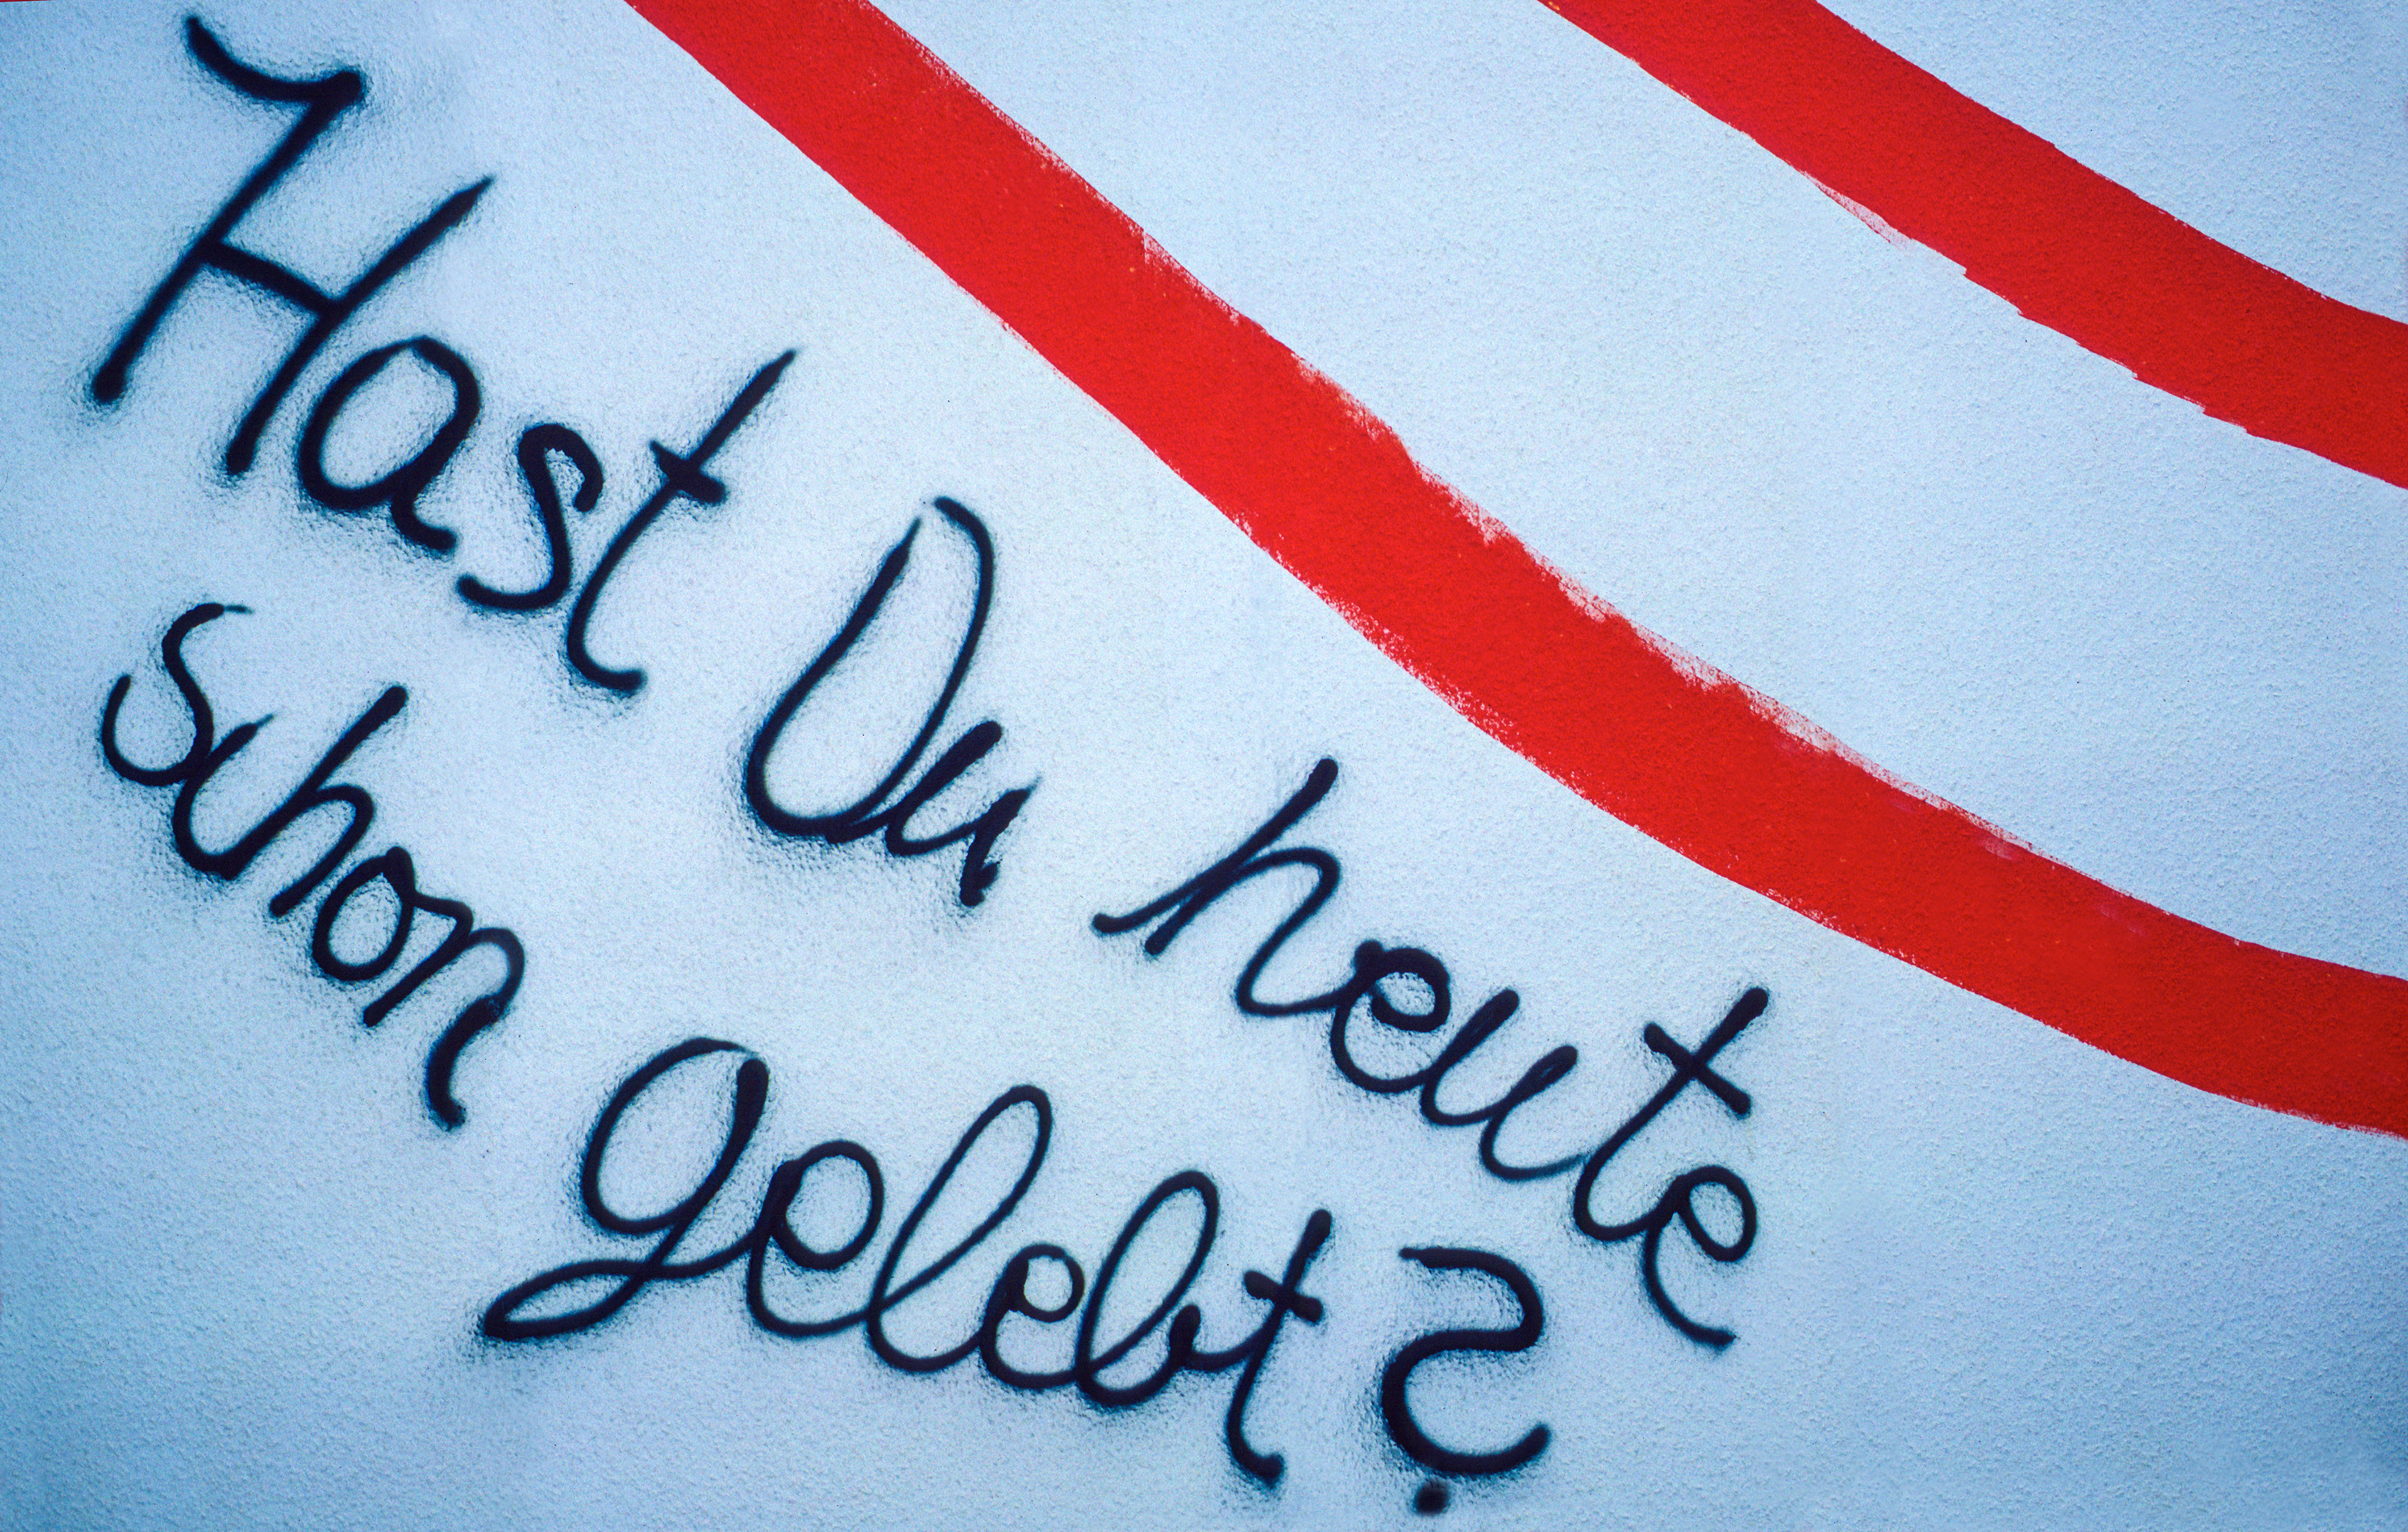 Hast Du heute
schon gelebt?